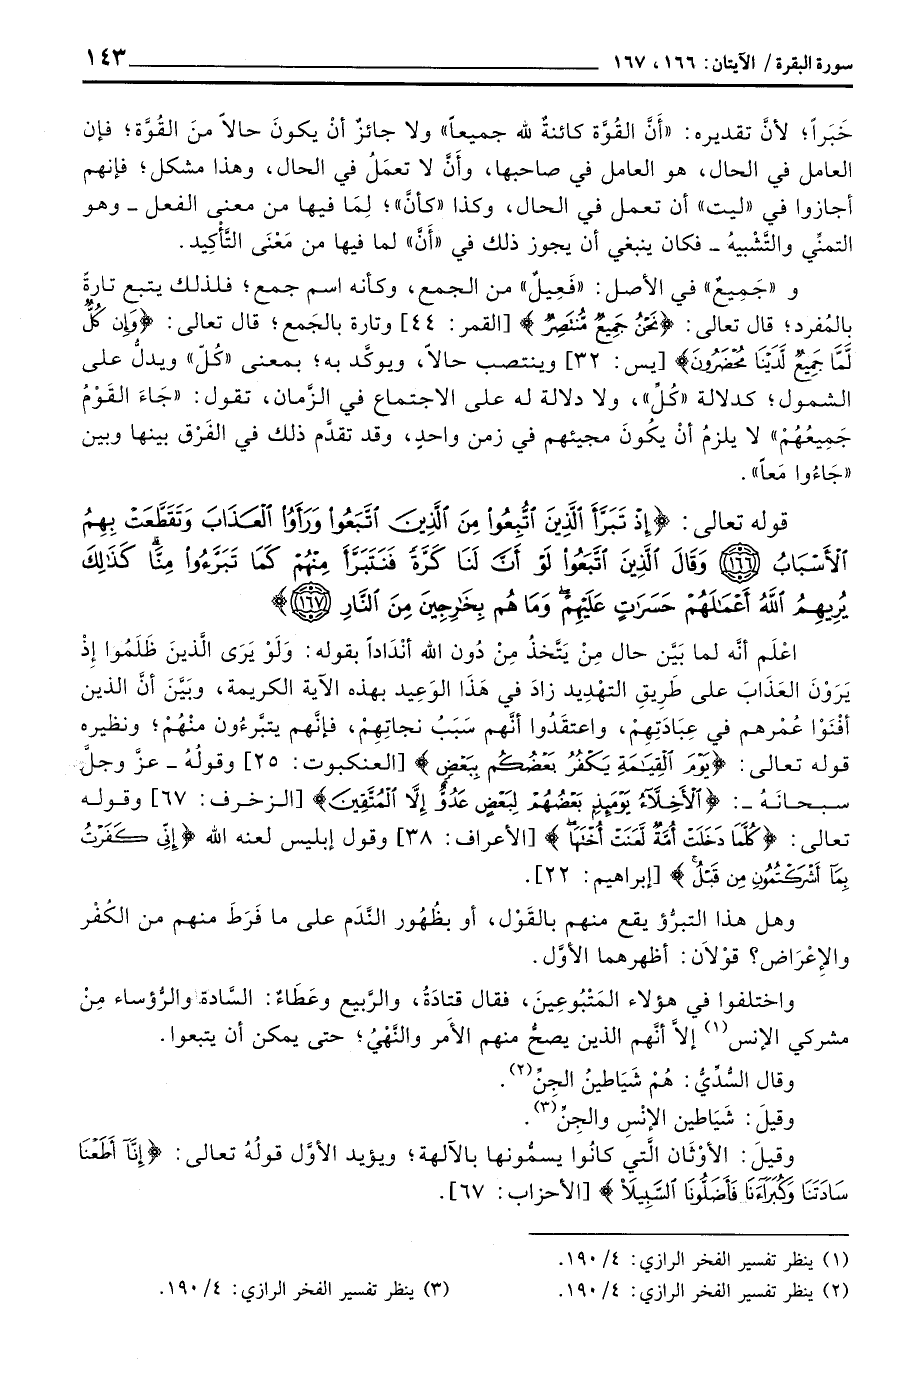 سورة البقرة / الآيتان: ١٦٦، ١٦٧ ١٤٣
خَبَراً؛ لأنَّ تقديره: «أَنَّ القُوَّة كائنةٌ لله جميعاً» ولا جائزٌ أنْ يكونَ حالاً منَ القُوَّة؛ فإن
العامل في الحال، هو العامل في صاحبها، وأَنَّ لا تعمَلُ في الحال، وهذا مشكل؛ فإنهم
أجازوا في «ليت» أن تعمل في الحال، وكذا «كأنَّ»؛ لِمَا فيها من معنى الفعل ـ وهو
التمنِّي والتَّشبيهُ ـ فكان ينبغي أن يجوز ذلك في «أَنَّ» لما فيها من مَعْنَى التَّأكِيد.
و «جَمِيعٌ» في الأصل: «فَعِيلٌ» من الجمع، وكأنه اسم جمع؛ فلذلك يتبع تارةً
بالمُفرد؛ قال تعالى: ﴿نَحْنُ جَمِيعٌ مُّنتَصِرٌ﴾ [القمر: ٤٤] وتارة بالجَمع؛ قال تعالى: ﴿وَإِن كُلٌّ
لَّمَّا جَمِيعٌ لَّدَيْنَا مُحْضَرُونَ﴾ [يس: ٣٢] وينتصب حالاً، ويوكَّد به؛ بمعنى «كُلّ» ويدلُّ على
الشمول؛ كدلالة «كُلِّ»، ولا دلالة له على الاجتماع في الزَّمان، تقول: «جَاءَ القَوْمُ
جَمِيعُهُمْ» لا يلزمُ أنْ يكُونَ مجيئهم في زمن واحدٍ، وقد تقدَّم ذلك في الفَرْق بينها وبين
«جَاءُوا مَعاً».
قوله تعالى: ﴿إِذْ تَبَرَّأَ ٱلَّذِينَ ٱتُّبِعُوا۟ مِنَ ٱلَّذِينَ ٱتَّبَعُوا۟ وَرَأَوُا۟ ٱلْعَذَابَ وَتَقَطَّعَتْ بِهِمُ
ٱلْأَسْبَابُ ١٦٦ وَقَالَ ٱلَّذِينَ ٱتَّبَعُوا۟ لَوْ أَنَّ لَنَا كَرَّةً فَنَتَبَرَّأَ مِنْهُمْ كَمَا تَبَرَّءُوا۟ مِنَّا ۗ كَذَٰلِكَ
يُرِيهِمُ ٱللَّهُ أَعْمَٰلَهُمْ حَسَرَٰتٍ عَلَيْهِمْ ۖ وَمَا هُم بِخَٰرِجِينَ مِنَ ٱلنَّارِ ١٦٧﴾
اعْلَم أنَّه لما بَيَّن حال مِنْ يَتَّخذُ مِنْ دُون الله أنْدَاداً بقوله: وَلَوْ يَرَى الَّذينَ ظَلَمُوا إذْ
يَرَوْنَ العَذَابَ على طَرِيقِ التهْدِيد زادَ في هَذَا الوَعِيد بهذه الآية الكريمة، وبَيَّنَ أنَّ الذين
أفْنَوْا عُمْرهم في عِبَادَتِهِمْ، واعتقَدُوا أنَّهم سَبَبُ نجاتِهِمْ، فإنَّهم يتبَّرءُون منْهُمْ؛ ونظيره
قوله تعالى: ﴿يَوْمَ ٱلْقِيَٰمَةِ يَكْفُرُ بَعْضُكُم بِبَعْضٍ﴾ [العنكبوت: ٢٥] وقولُهُ ـ عزَّ وجلَّ
سبحانَهُ ـ: ﴿ٱلْأَخِلَّآءُ يَوْمَئِذٍۭ بَعْضُهُمْ لِبَعْضٍ عَدُوٌّ إِلَّا ٱلْمُتَّقِينَ﴾ [الزخرف: ٦٧] وقوله
تعالى: ﴿كُلَّمَا دَخَلَتْ أُمَّةٌ لَّعَنَتْ أُخْتَهَا ۖ﴾ [الأعراف: ٣٨] وقول إبليس لعنه الله ﴿إِنِّى كَفَرْتُ
بِمَآ أَشْرَكْتُمُونِ مِن قَبْلُ ۗ﴾ [إبراهيم: ٢٢].
وهل هذا التبرُّؤ يقع منهم بالقَوْل، أو بظُهُور النَّدَم على ما فَرَطَ منهم من الكُفْر
والإعْرَاض؟ قوْلاَن: أظهرهما الأوَّل.
واختلفوا في هؤلاء المَتْبُوعِينَ، فقال قتادَةُ، والرَّبيع وعَطَاءٌ: السَّادة والرُّؤساء مِنْ
مشركي الإنس(١) إلاَّ أنَّهم الذين يصحُّ منهم الأَمر والنَّهْيُ؛ حتى يمكن أن يتبعوا.
وقال السُّدِّيُّ: هُمْ شَيَاطينُ الجِنِّ(٢).
وقيلَ: شَيَاطين الإنْسِ والجِنِّ(٣).
وقيلَ: الأوْثَان الَّتي كانُوا يسمُّونها بالآلهة؛ ويؤيد الأوَّل قولُهُ تعالى: ﴿إِنَّآ أَطَعْنَا
سَادَتَنَا وَكُبَرَآءَنَا فَأَضَلُّونَا ٱلسَّبِيلَا۠﴾ [الأحزاب: ٦٧].
(١) ينظر تفسير الفخر الرازي: ٤/ ١٩٠.
(٢) ينظر تفسير الفخر الرازي: ٤/ ١٩٠. (٣) ينظر تفسير الفخر الرازي: ٤/ ١٩٠.